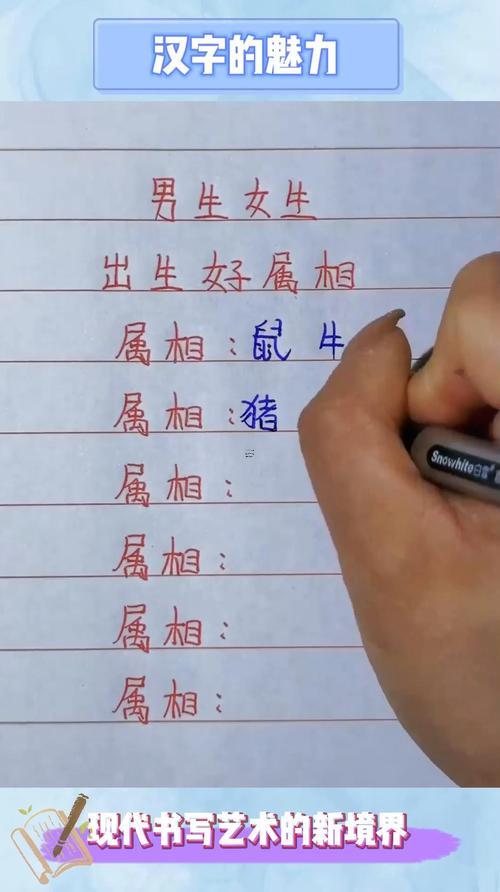 汉字的魅力
男生女生
出生好属相
属相：鼠 牛
属相：猪
属相：
属相：
属相：
属相：
Snowhite白雪
现代书写艺术的新境界